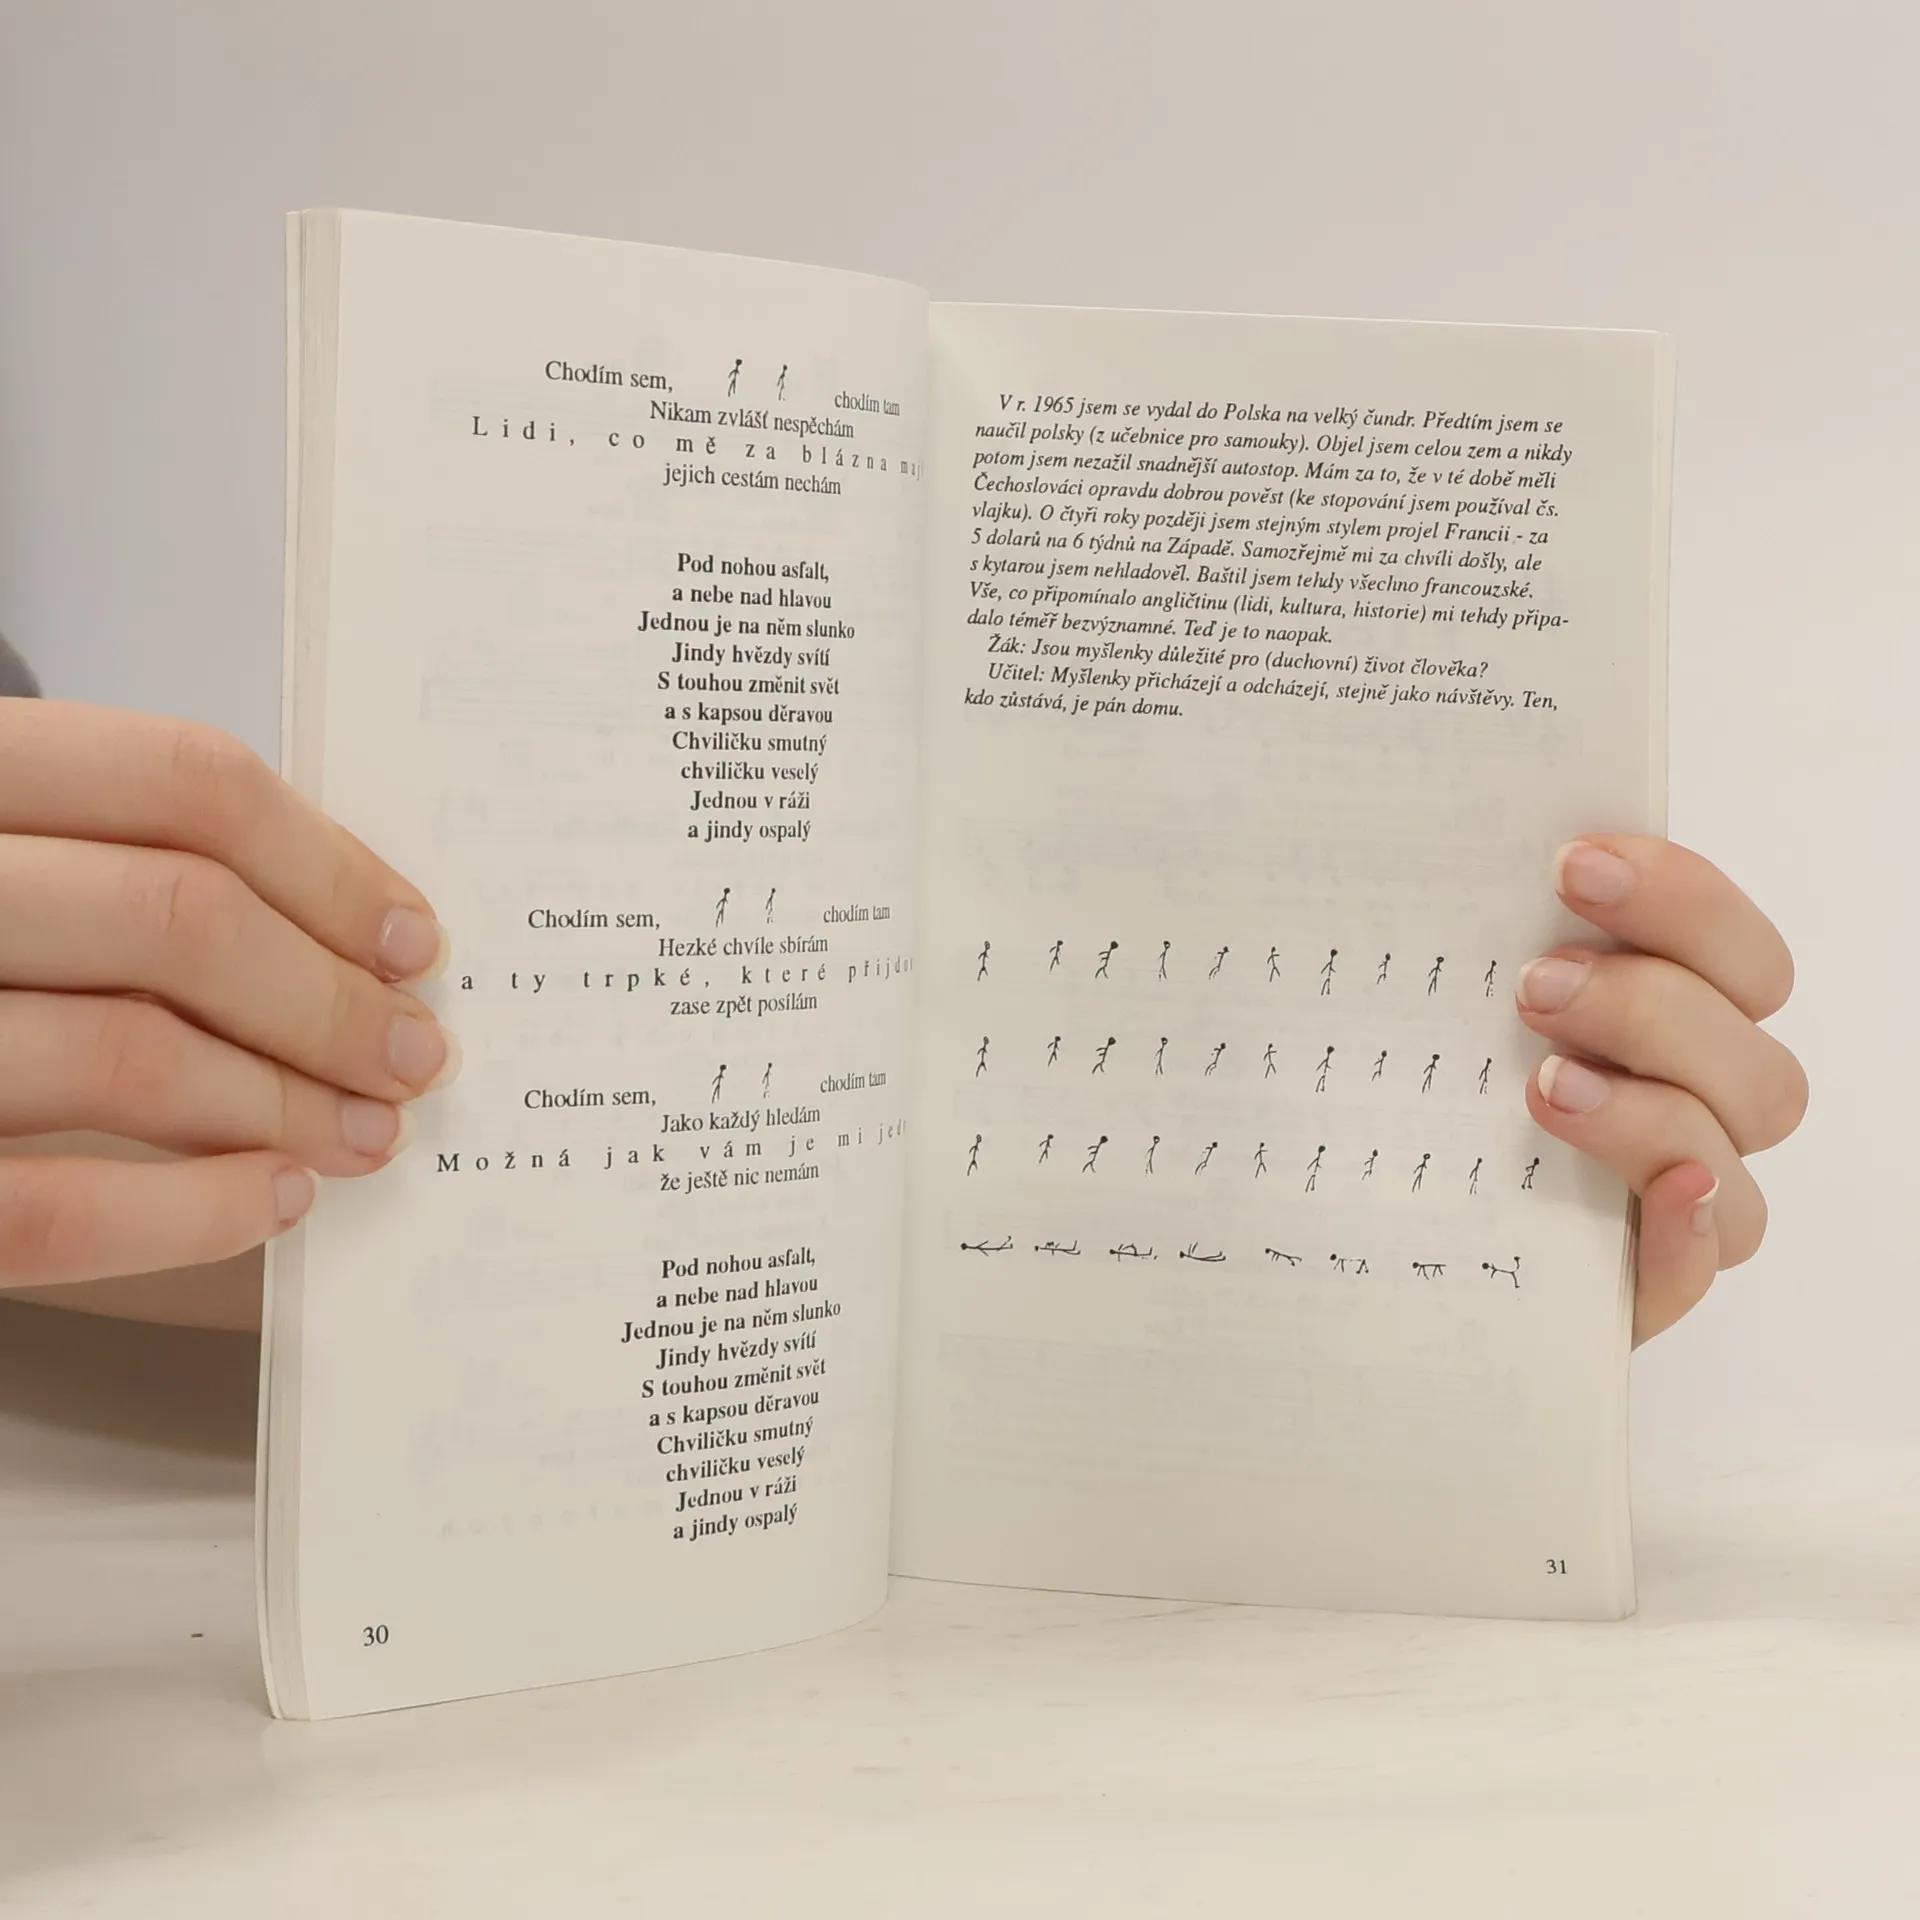 Chodím sem, chodím tam
Nikam zvlášť nespěchám
Lidi, co mě za blázna
jejich cestám nechám
Pod nohou asfalt,
a nebe nad hlavou
Jednou je na něm slunko
Jindy hvězdy svítí
S touhou změnit svět
a s kapsou děravou
Chviličku smutný
chviličku veselý
Jednou v ráži
a jindy ospalý
Chodím sem, chodím tam
Hezké chvíle sbírám
a ty trpké, které
zase zpět posílám
Chodím sem, chodím tam
Jako každý hledám
Možná jak vám je mi
že ještě nic nemám
Pod nohou asfalt,
a nebe nad hlavou
Jednou je na něm slunko
Jindy hvězdy svítí
S touhou změnit svět
a s kapsou děravou
Chviličku smutný
chviličku veselý
Jednou v ráži
a jindy ospalý
30
V r. 1965 jsem se vydal do Polska na velký čundr. Předtím jsem se
naučil polsky (z učebnice pro samouky). Objel jsem celou zem a nikdy
potom jsem nezažil snadnější autostop. Mám za to, že v té době měli
Čechoslováci opravdu dobrou pověst (ke stopování jsem používal čs.
vlajku). O čtyři roky později jsem stejným stylem projel Francii - za
5 dolarů na 6 týdnů na Západě. Samozřejmě mi za chvíli došly, ale
s kytarou jsem nehladověl. Baštil jsem tehdy všechno francouzské.
Vše, co připomínalo angličtinu (lidi, kultura, historie) mi tehdy připa-
dalo téměř bezvýznamné. Teď je to naopak.
Žák: Jsou myšlenky důležité pro (duchovní) život člověka?
Učitel: Myšlenky přicházejí a odcházejí, stejně jako návštěvy. Ten,
kdo zůstává, je pán domu.
31